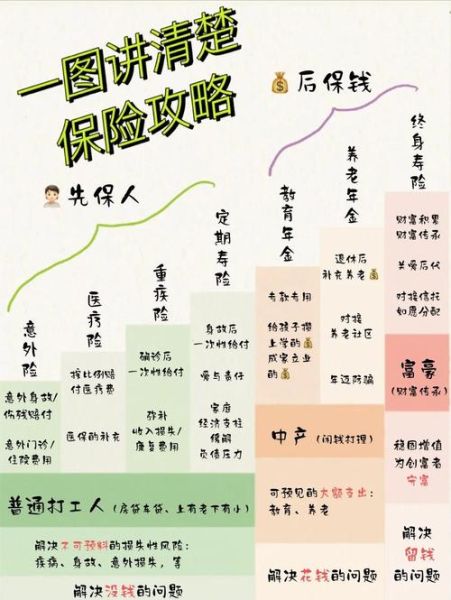 一图讲清楚
保险攻略
先保人
后保钱
意外险
意外身故/
伤残赔付
意外门诊/
住院费用
医疗险
按比例赔
付医疗费
医保的补充
重疾险
确诊后
一次性给付
弥补
收入损失/
康复费用
定期寿险
身故后
一次性给付
爱与责任
家庭
经济支柱
缓解
负债压力
普通打工人(房贷车贷、上有老下有小)
解决不可预料的损失性风险:
疾病、身故、意外损失,等
解决没钱的问题
教育年金
专款专用
给孩子攒
上学的
成家立业
的
养老年金
退休后
补充养老
对接
养老社区
年迈防骗
中产(闲钱打理)
可预见的大额支出:
教育、养老
解决花钱的问题
终身寿险
财富积累
财富传承
关爱后代
对接信托
如愿分配
富豪
(财富传承)
稳固增值
为创富者
守富
解决
留钱
的问题